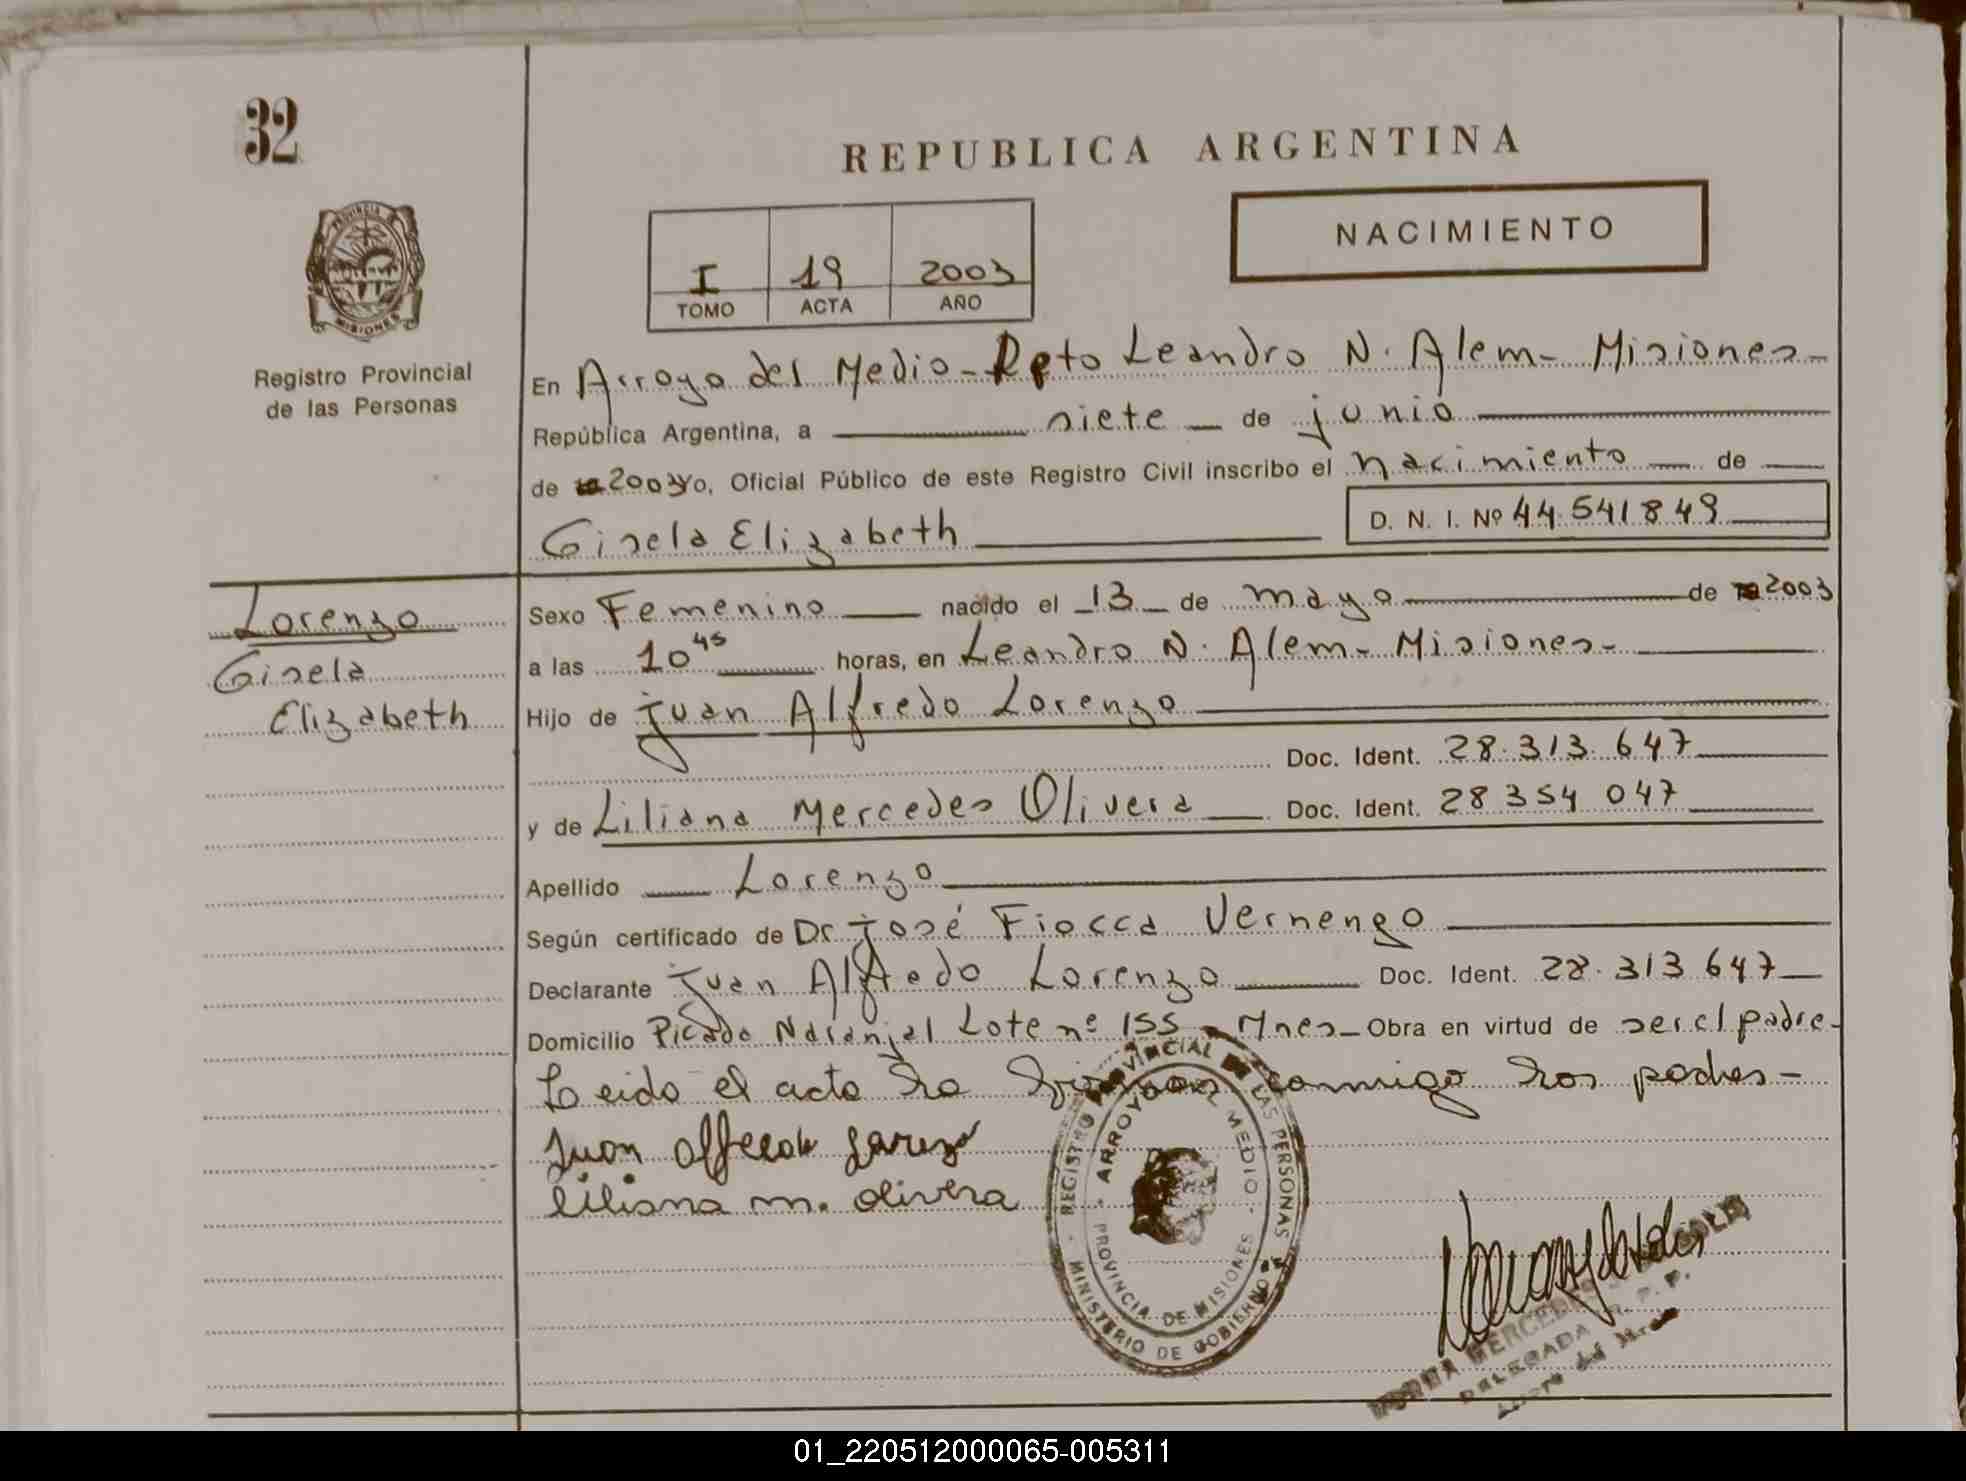 32
REPUBLICA ARGENTINA
PROVINCIA DE
MISIONES
Registro Provincial
de las Personas
NACIMIENTO
I 19 2003
TOMO ACTA AÑO
En Arroyo del Medio - Dpto Leandro N. Alem - Misiones -
República Argentina, a siete de junio
de 2003 Yo, Oficial Público de este Registro Civil inscribo el nacimiento de
Gisela Elizabeth D. N. I. Nº 44.541849
Lorenzo
Gisela
Elizabeth
Sexo Femenino nacido el 13 de mayo de 2003
a las 10 45 horas, en Leandro N. Alem - Misiones -
Hijo de Juan Alfredo Lorenzo
Doc. Ident. 28.313.647
y de Liliana Mercedes Olivera Doc. Ident. 28 354 047
Apellido Lorenzo
Según certificado de Dr José Fiocca Vernengo
Declarante Juan Alfredo Lorenzo Doc. Ident. 28.313 647
Domicilio Picada Naranjal Lote nº 155 - Mnes - Obra en virtud de ser el padre -
Leido el acta la firman conmigo los padres -
Juan Alfredo Lorenzo
liliana m. olivera
REGISTRO PROVINCIAL DE LAS PERSONAS
ARROYO DEL MEDIO
PROVINCIA DE MISIONES
MINISTERIO DE GOBIERNO
MERCEDES
DELEGADA R. P. P.
Arroyo del Medio
01_220512000065-005311